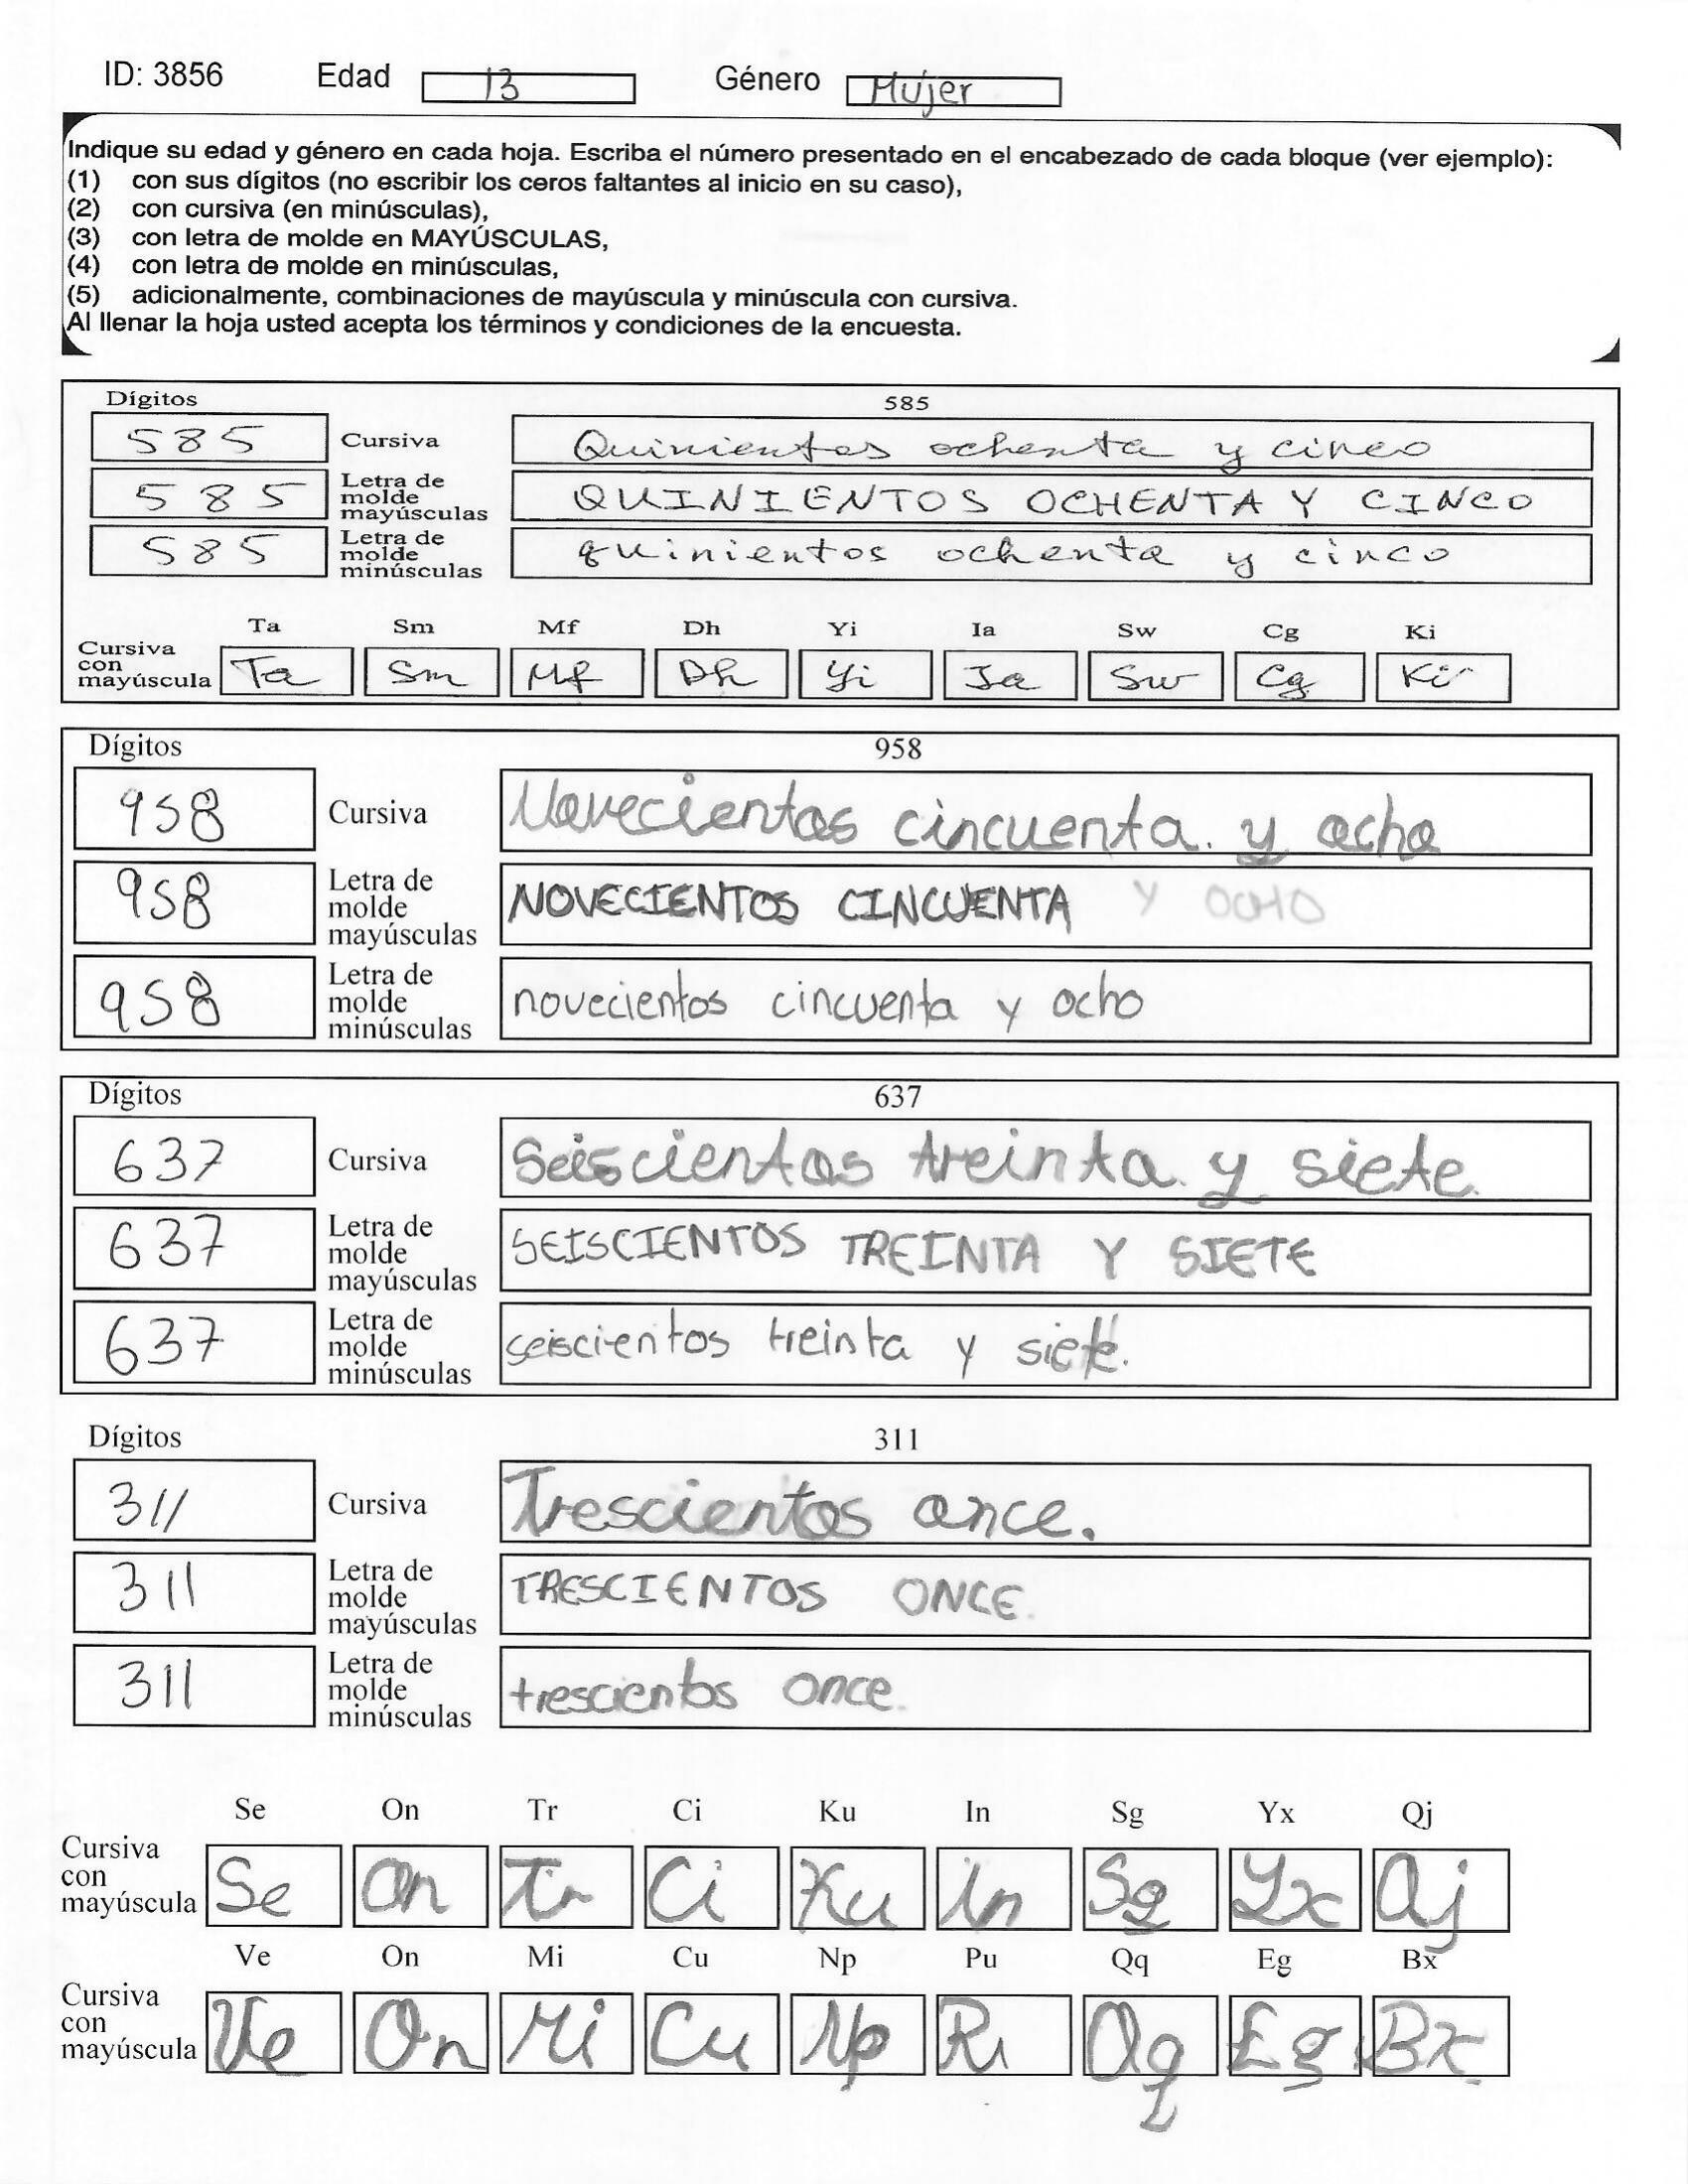 ID: 3856 Edad 13 Género Mujer
Indique su edad y género en cada hoja. Escriba el número presentado en el encabezado de cada bloque (ver ejemplo):
(1) con sus dígitos (no escribir los ceros faltantes al inicio en su caso),
(2) con cursiva (en minúsculas),
(3) con letra de molde en MAYÚSCULAS,
(4) con letra de molde en minúsculas,
(5) adicionalmente, combinaciones de mayúscula y minúscula con cursiva.
Al llenar la hoja usted acepta los términos y condiciones de la encuesta.
Dígitos 585
585 Cursiva Quinientos ochenta y cinco
585 Letra de molde mayúsculas QUINIENTOS OCHENTA Y CINCO
585 Letra de molde minúsculas quinientos ochenta y cinco
Ta Sm Mf Dh Yi Ia Sw Cg Ki
Cursiva con mayúscula Ta Sm Mf Dh Yi Ia Sw Cg Ki
Dígitos 958
958 Cursiva Novecientos cincuenta. y ocho
958 Letra de molde mayúsculas NOVECIENTOS CINCUENTA Y OCHO
958 Letra de molde minúsculas novecientos cincuenta y ocho
Dígitos 637
637 Cursiva Seiscientos treinta y siete
637 Letra de molde mayúsculas SEISCIENTOS TREINTA Y SIETE
637 Letra de molde minúsculas seiscientos treinta y siete.
Dígitos 311
311 Cursiva Trescientos once.
311 Letra de molde mayúsculas TRESCIENTOS ONCE.
311 Letra de molde minúsculas trescientos once.
Se On Tr Ci Ku In Sg Yx Qj
Cursiva con mayúscula Se On Tr Ci Ku In Sg Yx Qj
Ve On Mi Cu Np Pu Qq Eg Bx
Cursiva con mayúscula Ve On Mi Cu Np Pu Qq Eg Bx